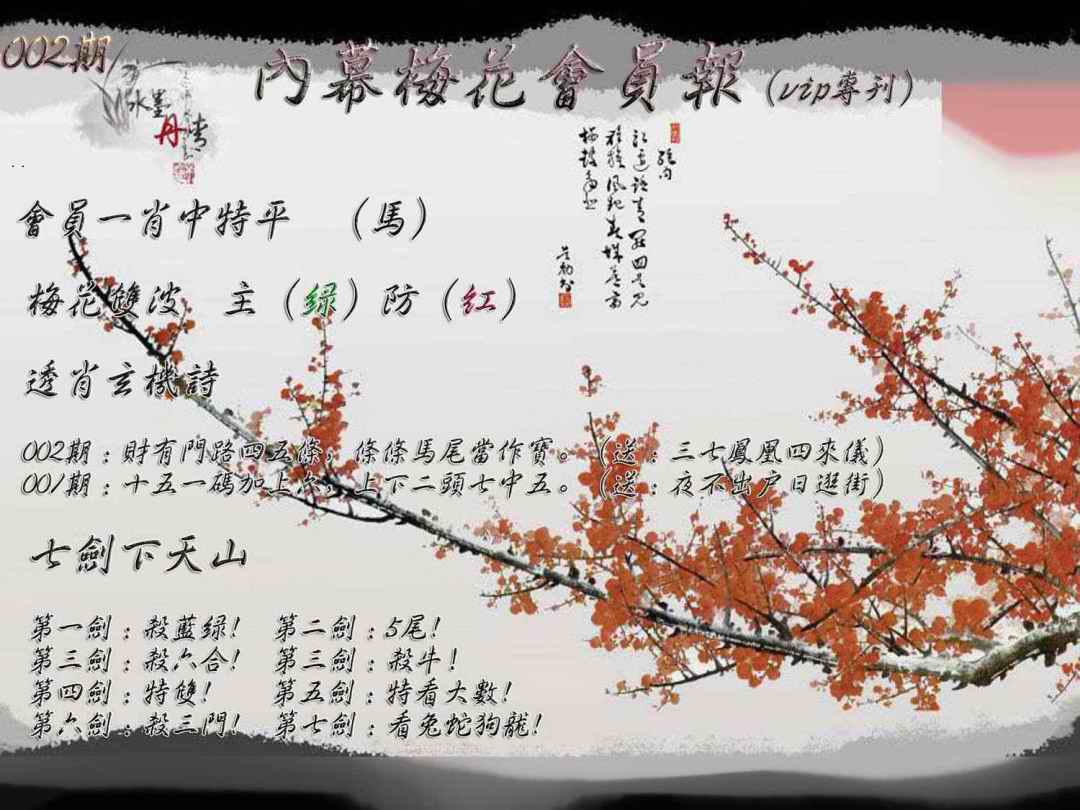 002期
內幕梅花會員報(vip專刊)
水墨
丹青
會員一肖中特平 (馬)
梅花雙波 主(绿)防(红)
透肖玄機詩
002期:財有門路四五條,條條馬尾當作寶。(送:三七鳳凰四來儀)
001期:十五一碼加上六,上下二頭七中五。(送:夜不出户日逛街)
七劍下天山
第一劍:殺藍绿! 第二劍:5尾!
第三劍:殺六合! 第三劍:殺牛!
第四劍:特雙! 第五劍:特看大數!
第六劍:殺三門! 第七劍:看兔蛇狗龍!